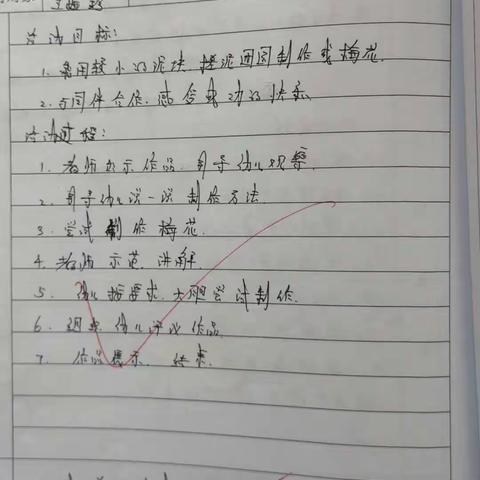 活动目标:
1. 会用较小的泥块, 搓泥团圆制作成梅花.
2. 与同伴合作, 感受劳动的快乐
活动过程:
1. 老师出示作品, 引导幼儿观察.
2. 引导幼儿说一说制作方法
3. 尝试制作梅花.
4. 老师示范, 讲解
5. 幼儿按要求, 大胆尝试制作.
6. 组织幼儿评议作品
7. 作品展示. 结束.